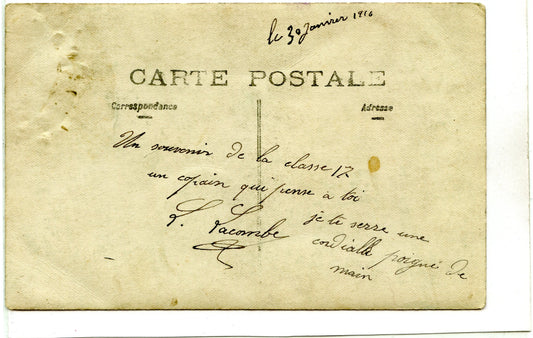 le 30 Janvier 1916
CARTE POSTALE
Correspondance
Adresse
Un souvenir de la classe 17
un copain qui pense à toi
je te serre une
cordialle poigné de
main
L. Lacombe